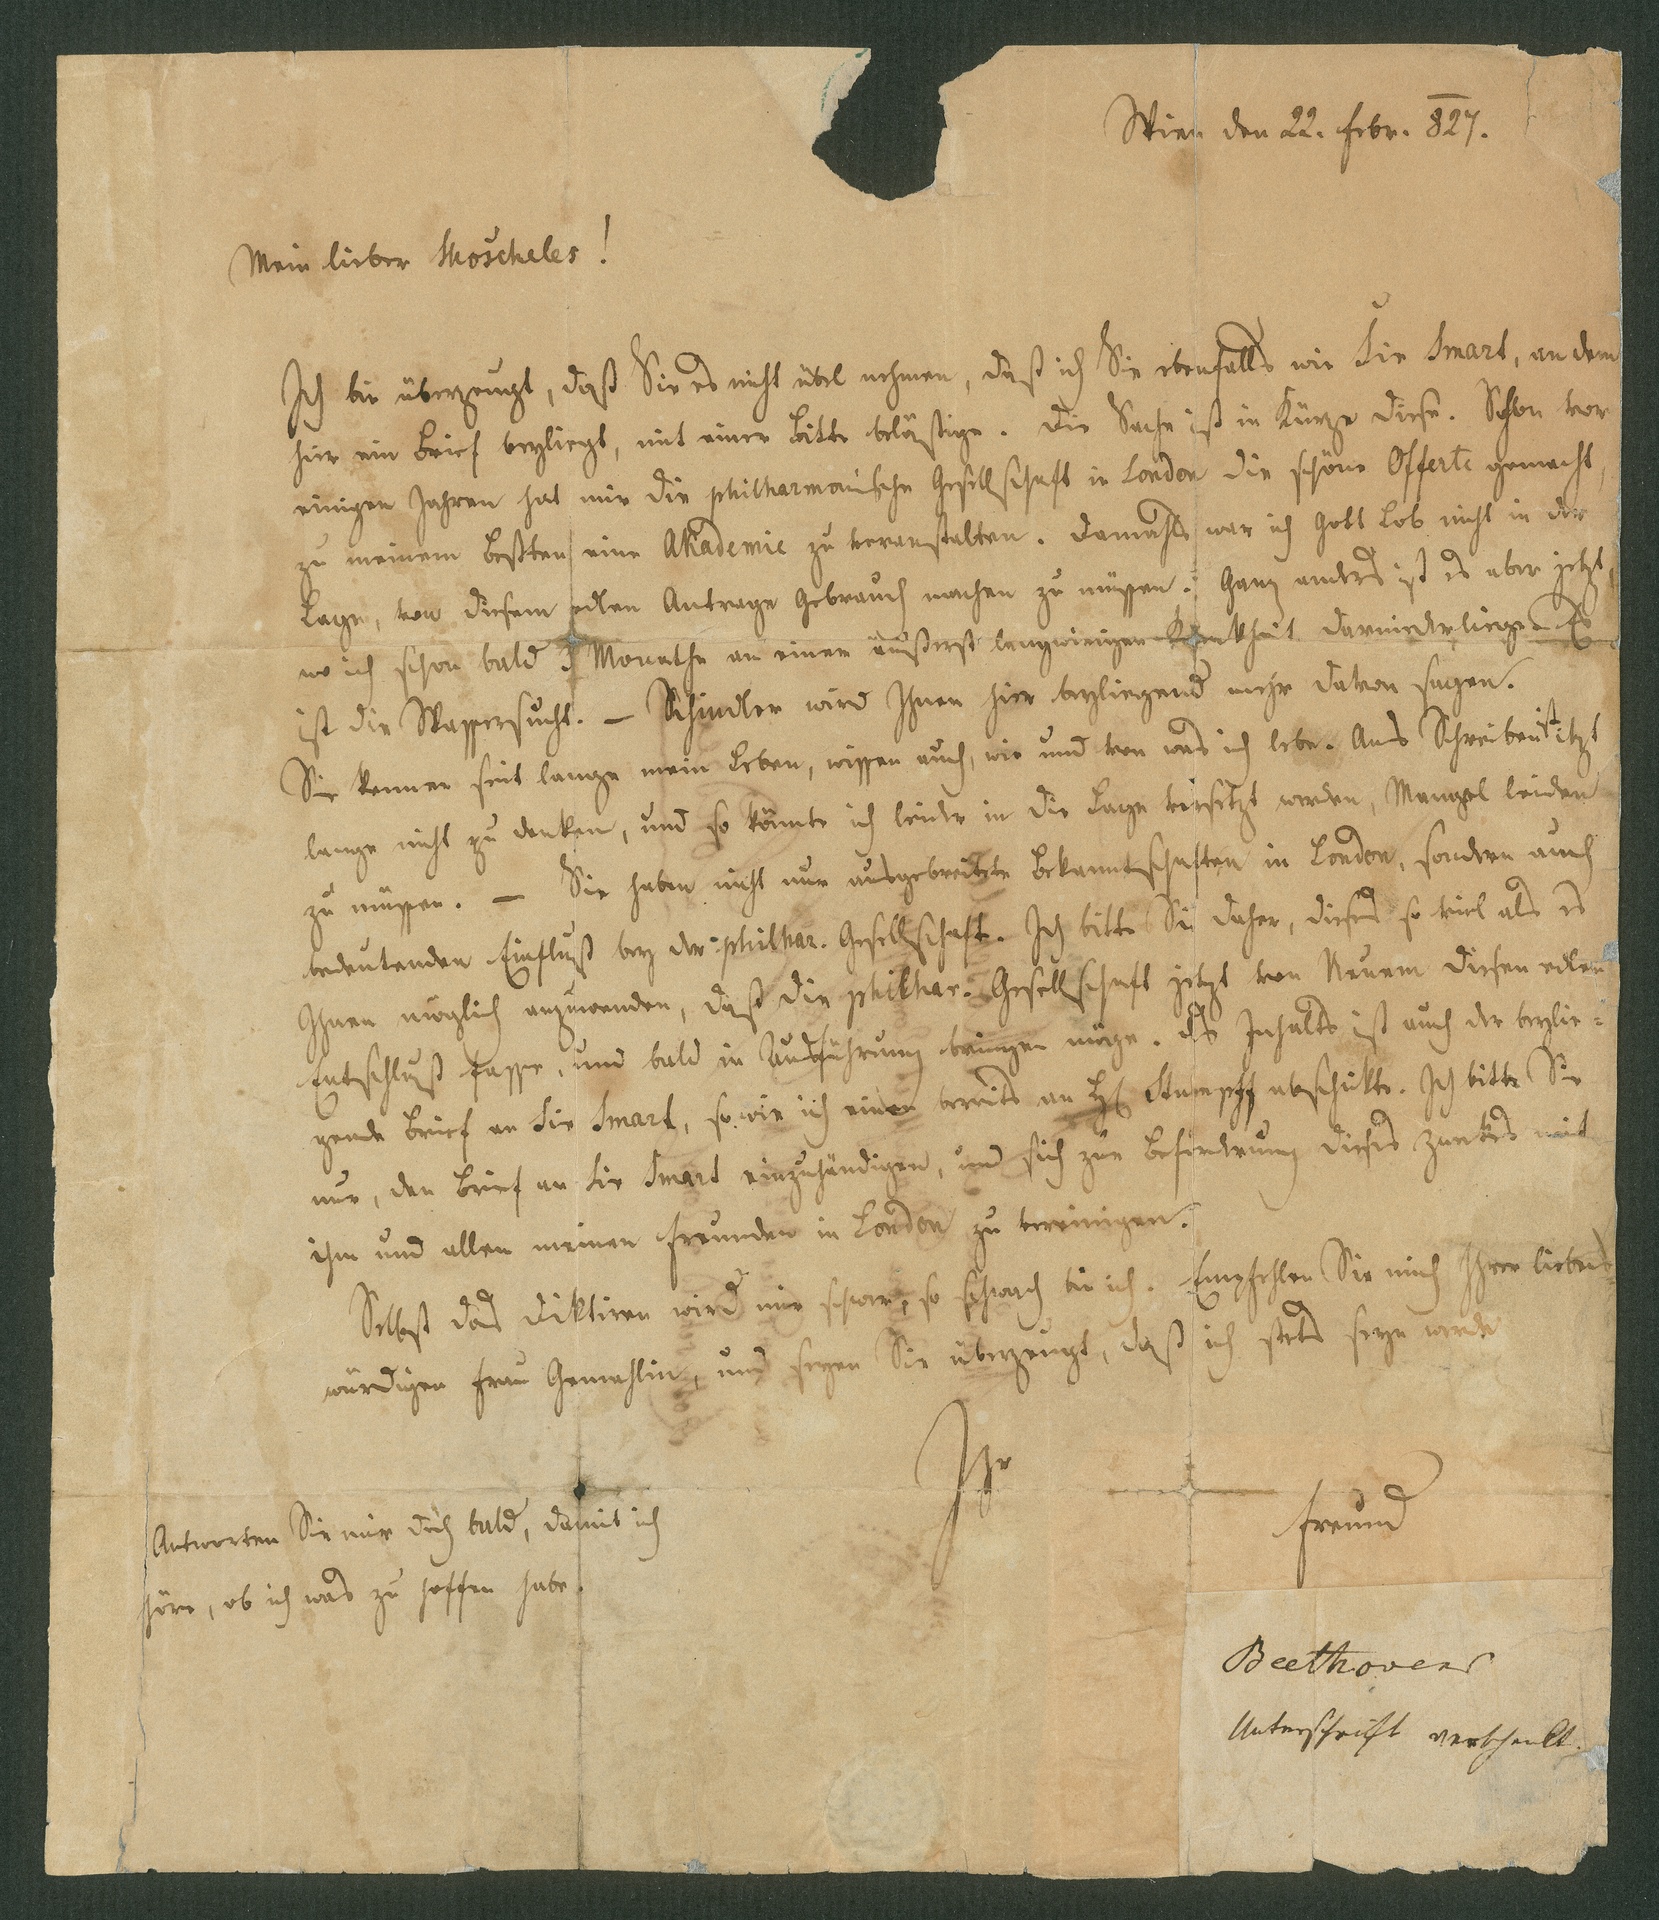 Wien den 22. Febr. 827.
Mein lieber Moscheles!
Ich bin überzeugt, daß Sie es nicht übel nehmen, daß ich Sie ebenfalls wie Sir Smart, an dem
hier ein Brief beyliegt, mit einer Bitte belästige. Die Sache ist in Kürze diese. Schon vor
einigen Jahren hat mir die philharmonische Gesellschaft in London die schöne Offerte gemacht,
zu meinem Beßten eine Akademie zu veranstalten. Damahls war ich Gott Lob nicht in der
Lage, von diesem edlen Antrage Gebrauch machen zu müssen. Ganz anders ist es aber jetzt,
wo ich schon bald 3 Monathe an einer äußerst langwierigen Krankheit darniederliege. Es
ist die Wassersucht. — Schindler wird Ihnen hier beyliegend mehr davon sagen.
Sie kennen seit lange mein Leben, wissen auch, wie und von was ich lebe. Ans Schreiben ist jetzt
lange nicht zu denken, und so könnte ich leider in die Lage versetzt werden, Mangel leiden
zu müssen. — Sie haben nicht nur ausgebreitete Bekanntschaften in London, sondern auch
bedeutenden Einfluß bey der philhar. Gesellschaft. Ich bitte Sie daher, diesen so viel als es
Ihnen möglich anzuwenden, daß die philhar. Gesellschaft jetzt von Neuem diesen edlen
Entschluß fasse, und bald in Ausführung bringen möge. Des Inhalts ist auch der beylie-
gende Brief an Sir Smart, so wie ich einen bereits an H. Stumpff abschickte. Ich bitte Sie
nur, den Brief an Sir Smart einzuhändigen, und sich zur Beförderung dieses Zweckes mit
ihm und allen meinen Freunden in London zu vereinigen.
Selbst das Diktiren wird mir schwer, so schwach bin ich. Empfehlen Sie mich Ihrer liebens
würdigen Frau Gemahlin, und seyen Sie überzeugt, daß ich stets seyn werde
Ihr
Freund
Antworten Sie mir doch bald, damit ich
höre, ob ich was zu hoffen habe.
Beethovens
Unterschrift verschenkt.